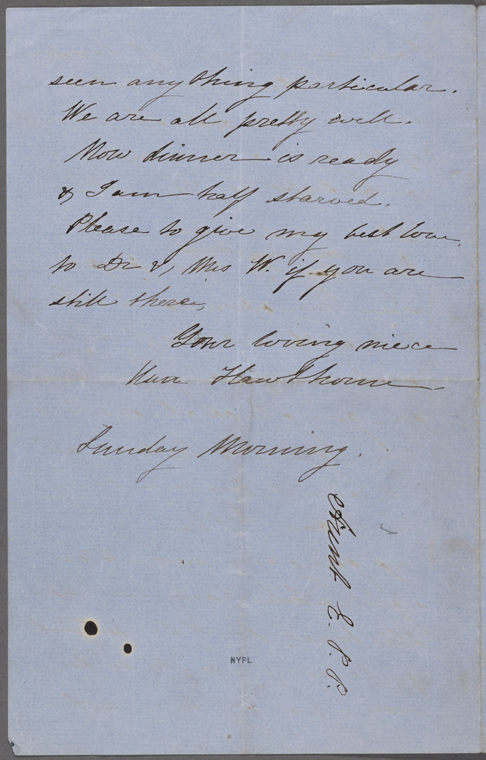 seen anything particular.
We are all pretty well.
Now dinner is ready
& I am half starved.
Please to give my best love
to Dr & Mrs W. if you are
still there,
Your loving niece
Una Hawthorne
Sunday Morning.
Aunt E. P. P.
NYPL